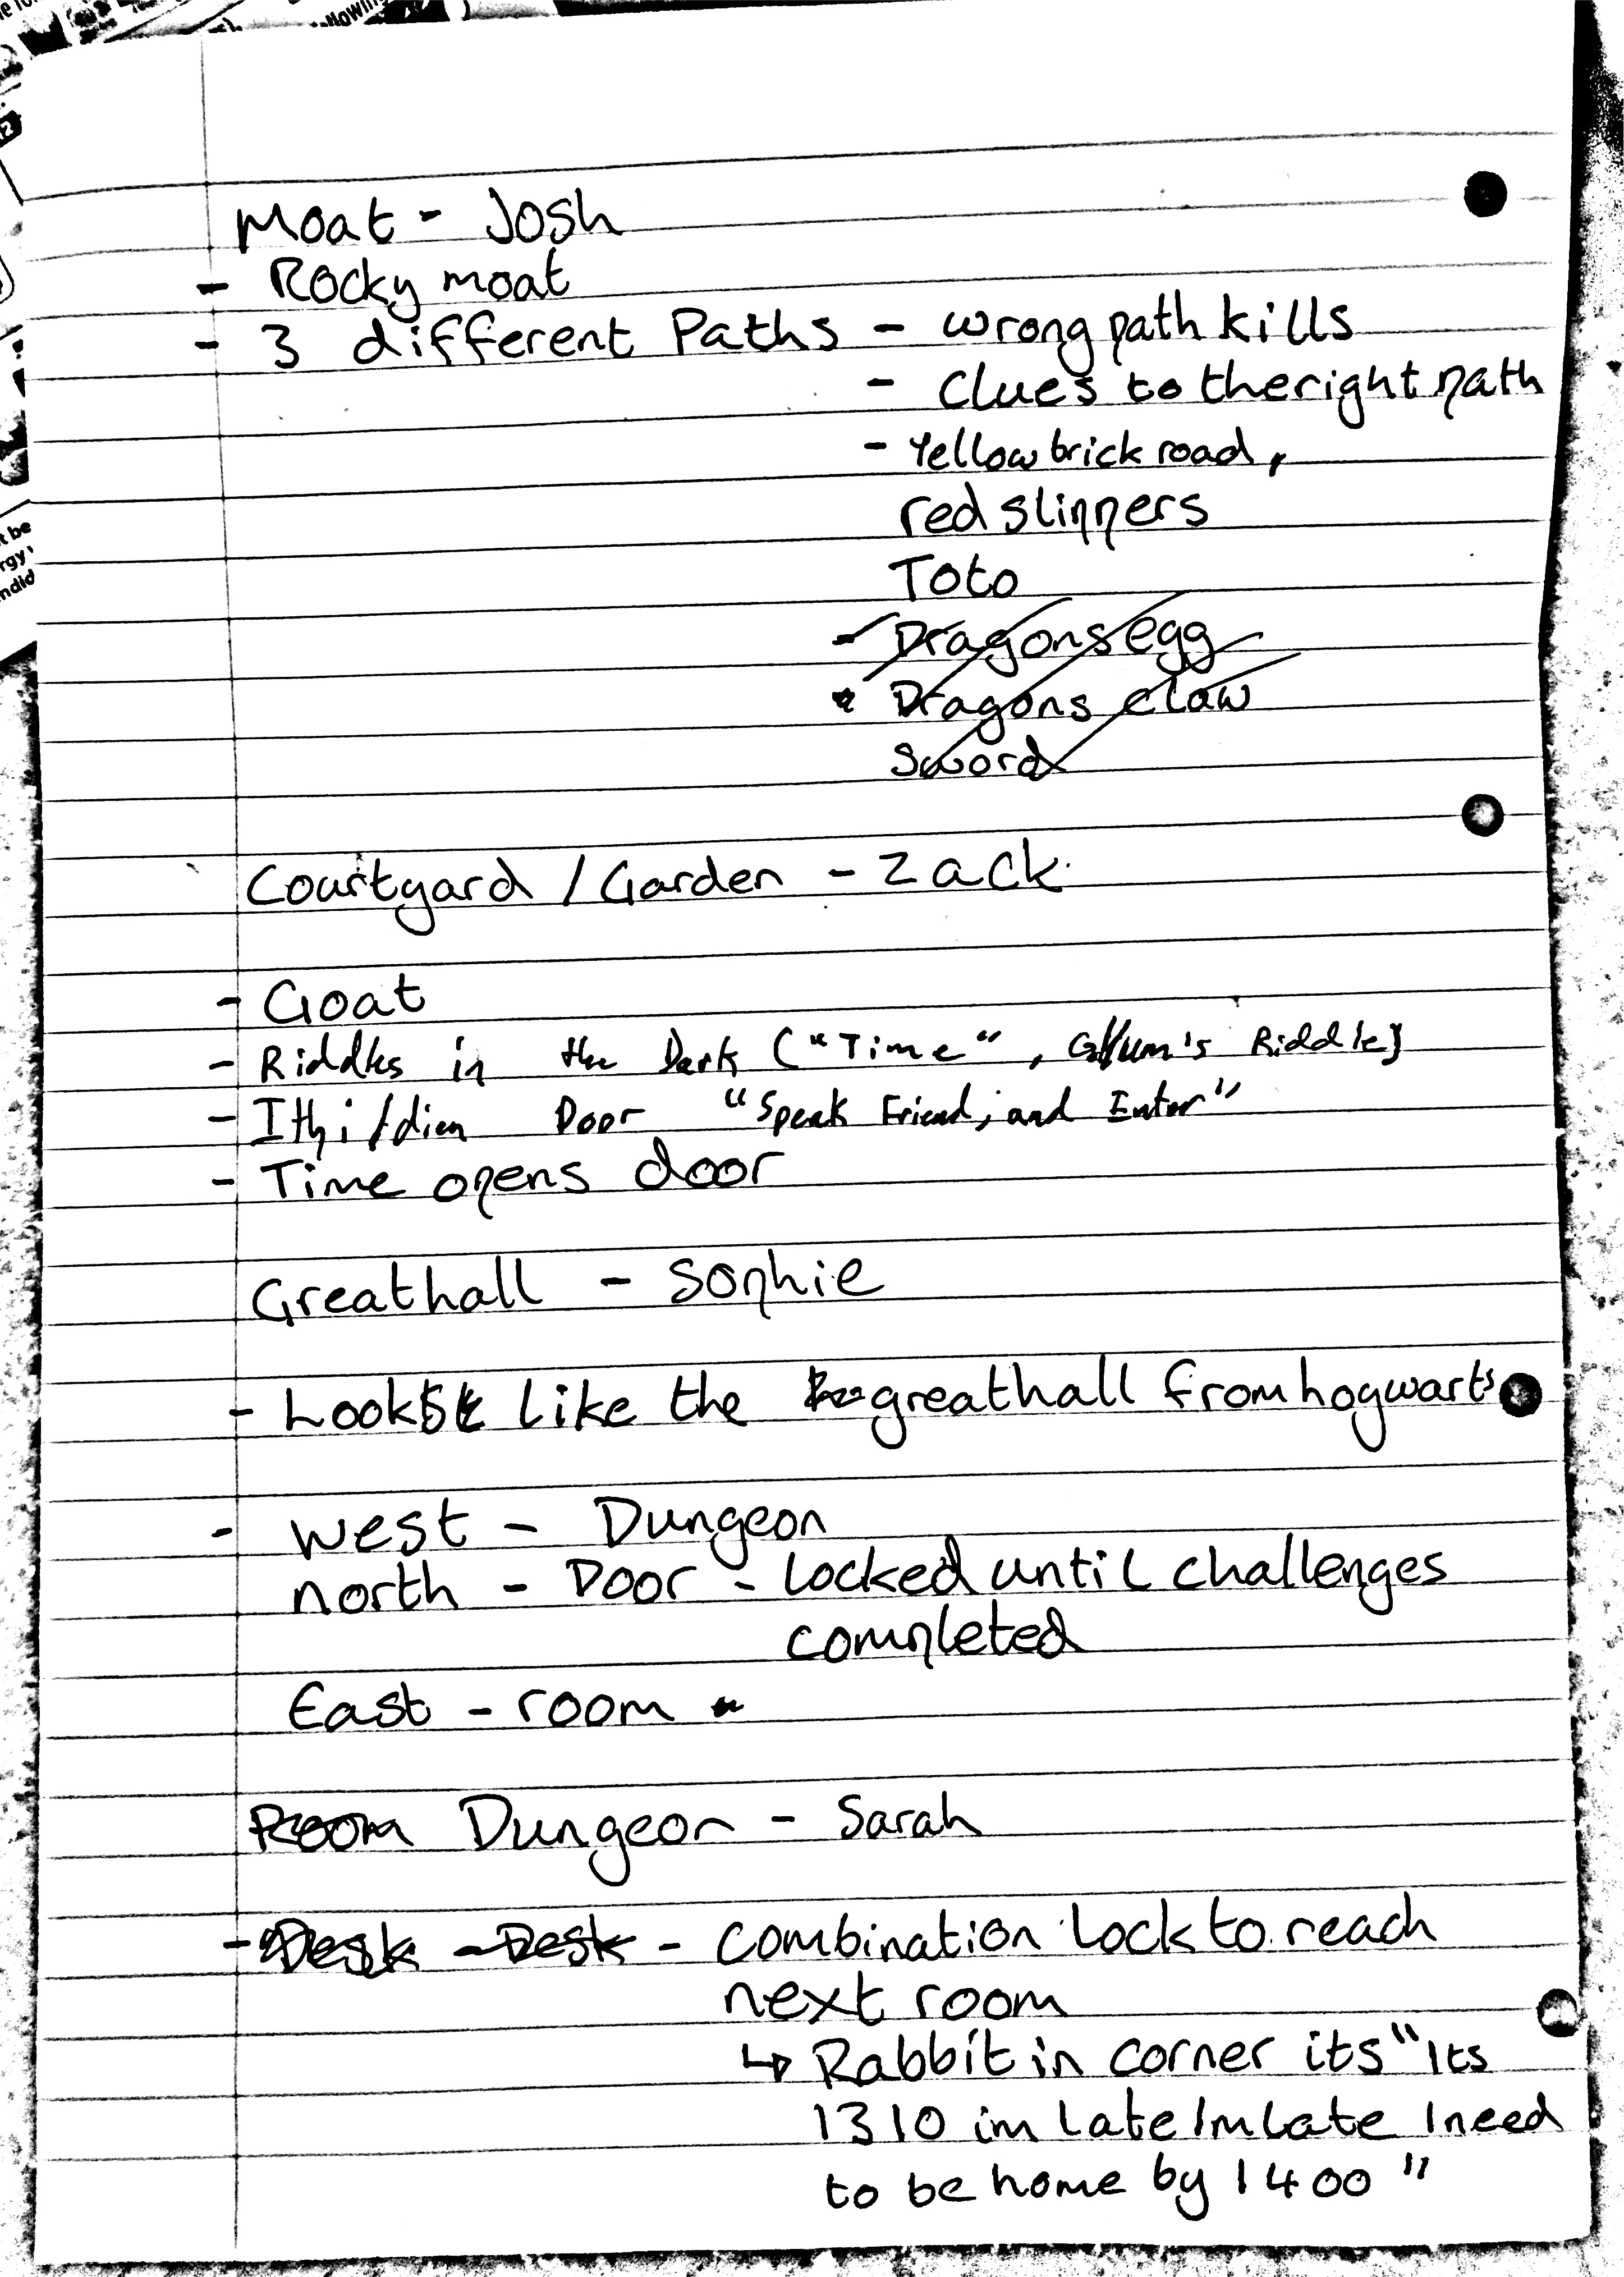 Howlin
Moat - Josh
- Rocky moat
- 3 different Paths - wrong path kills
- Clues to the right path
- Yellow brick road,
red slippers
Toto
- Dragons egg
Dragons claw
Sword
Courtyard / Garden - Zack
- Goat
- Riddles in the Dark ("Time", Gollum's Riddle)
- Ithildien Door "Speak Friend, and Enter"
- Time opens door
Greathall - Sophie
- Looks like the greathall from hogwarts
- West - Dungeon
north - Door - Locked until challenges
completed
East - room
Room Dungeon - Sarah
- Desk - Desk - Combination Lock to reach
next room
↳ Rabbit in corner its "Its
1310 im Late Im Late I need
to be home by 1400"
t be
rgy'
ndid